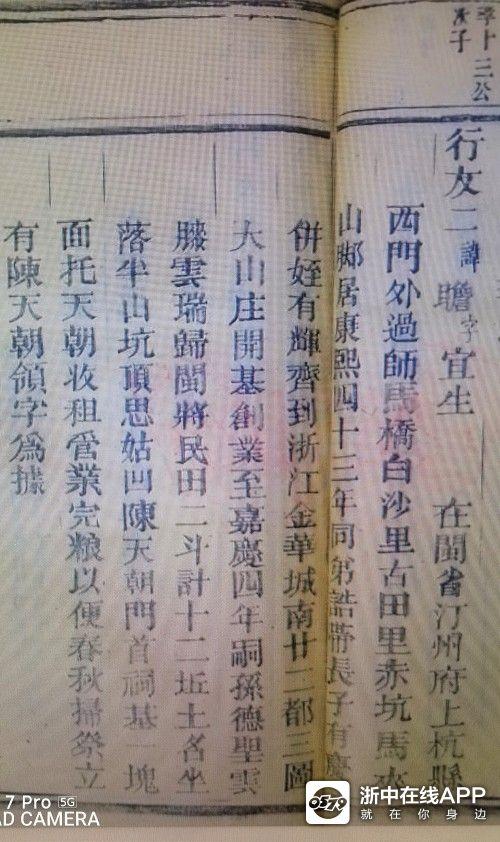 季十三公
次子
行友二 諱 瞻 字 宜生 在閩省汀州府上杭縣
西門外過師馬橋白沙里古田里赤坑馬夾
山鄉居康熙四十三年同弟誥帶長子有慶
併姪有輝齊到浙江金華城南廿二都三圖
大山庄開基創業至嘉慶四年嗣孫德聖雲
騰雲瑞歸閩將民田二斗計十二坵土名坐
落牛山坑頂思姑凹陳天朝門首祠基一塊
面托天朝收租管業完粮以便春秋掃祭立
有陳天朝領字爲據
7 Pro 5G
AD CAMERA
0579
浙中在线APP
就在你身边